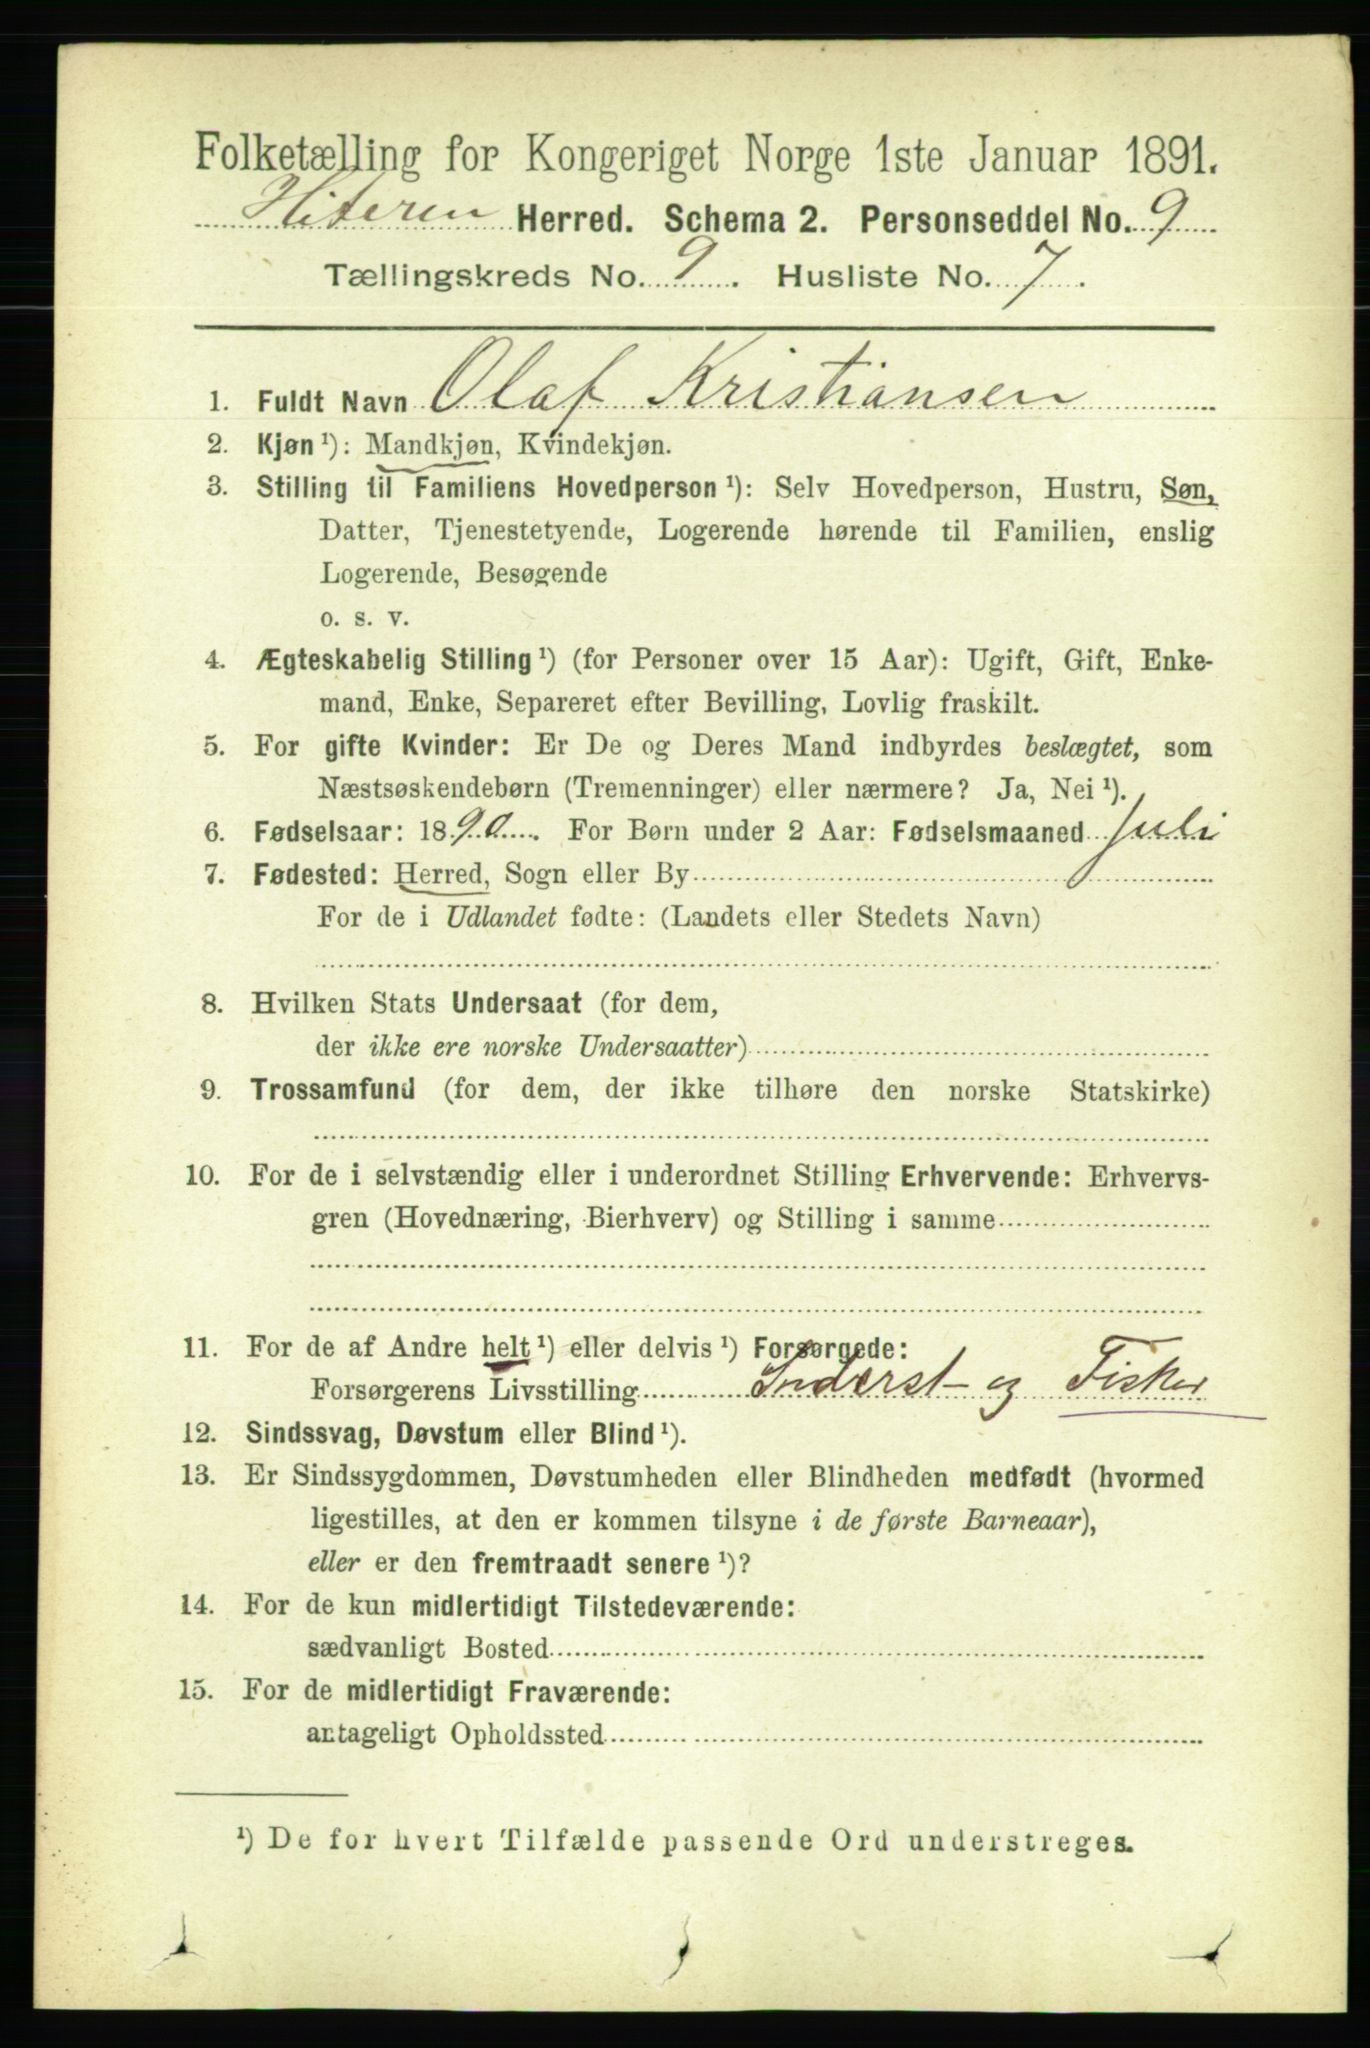 Folketælling for Kongeriget Norge 1ste Januar 1891.
Hiteren Herred. Schema 2. Personseddel No. 9
Tællingskreds No. 9. Husliste No. 7.
1. Fuldt Navn Olaf Kristiansen
2. Kjøn ¹): Mandkjøn, Kvindekjøn.
3. Stilling til Familiens Hovedperson ¹): Selv Hovedperson, Hustru, Søn,
Datter, Tjenestetyende, Logerende hørende til Familien, enslig
Logerende, Besøgende
o. s. v.
4. Ægteskabelig Stilling ¹) (for Personer over 15 Aar): Ugift, Gift, Enke-
mand, Enke, Separeret efter Bevilling, Lovlig fraskilt.
5. For gifte Kvinder: Er De og Deres Mand indbyrdes beslægtet, som
Næstsøskendebørn (Tremenninger) eller nærmere? Ja, Nei ¹).
6. Fødselsaar: 1890. For Børn under 2 Aar: Fødselsmaaned Juli
7. Fødested: Herred, Sogn eller By
For de i Udlandet fødte: (Landets eller Stedets Navn)
8. Hvilken Stats Undersaat (for dem,
der ikke ere norske Undersaatter)
9. Trossamfund (for dem, der ikke tilhøre den norske Statskirke)
10. For de i selvstændig eller i underordnet Stilling Erhvervende: Erhvervs-
gren (Hovednæring, Bierhverv) og Stilling i samme
11. For de af Andre helt ¹) eller delvis ¹) Forsørgede:
Forsørgerens Livsstilling Inderst og Fisker
12. Sindssvag, Døvstum eller Blind ¹).
13. Er Sindssygdommen, Døvstumheden eller Blindheden medfødt (hvormed
ligestilles, at den er kommen tilsyne i de første Barneaar),
eller er den fremtraadt senere ¹)?
14. For de kun midlertidigt Tilstedeværende:
sædvanligt Bosted
15. For de midlertidigt Fraværende:
antageligt Opholdssted
¹) De for hvert Tilfælde passende Ord understreges.